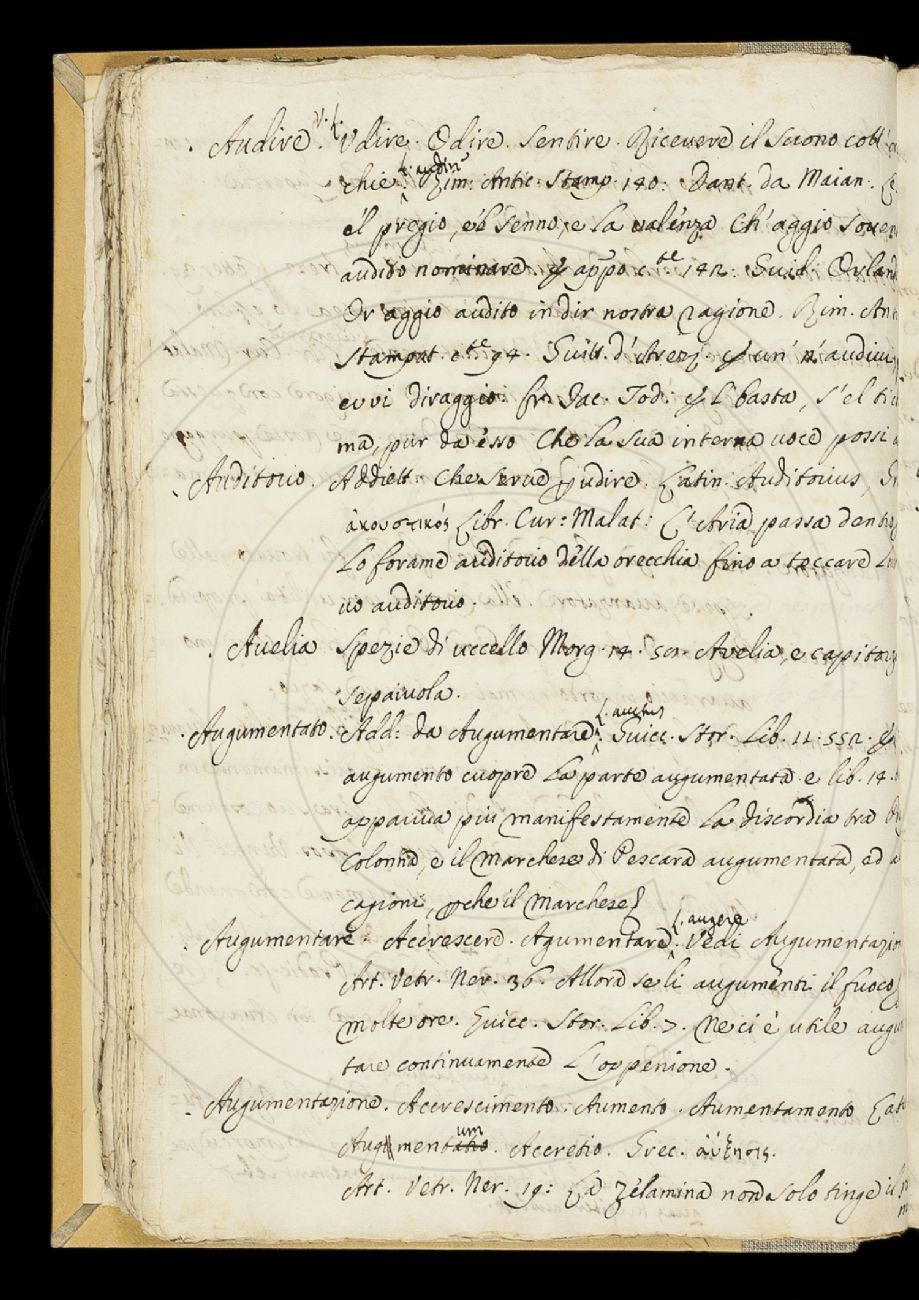 Audire. V. L. Udire. Odire. Sentire. Ricevere il suono coll'
chie. L. audire Rim. Antic. Stamp. 140: Dant. da Maian.
el pregio, e'l senno, e la valenza Ch' aggio soven
audito nominare. E appo cte 142. Guid. Orland
Or' aggio audito in dir nostra ragione. Rim. An
Stampat. cte 94. Guitt. d' Arezz. un' audivi
e vi diraggio. fr. Jac. Tod. E l' basta, s' el
ma, pur da esso Che la sua interna voce possi
Auditorio. Addiett. Che serve p udire. Latin. Auditorius,
ἀκουστικός Libr. Cur: Malat: L' Aria passa dentro
Lo forame auditorio della orecchia fino a toccare
vo auditorio.
Avelia Spezie di uccello Morg. 14. 50. Avelia, e
sepaiuola.
Augumentato. Add: da Augumentare. L. auctus Guicc. Stor. Lib. 11. 552.
augumento cuopre la parte augumentata. e lib. 14.
appariva più manifestamente la discordia tra
Colonna, e il Marchese di Pescara augumentata, ed a
cagioni, pche il Marchese
Augumentare. Accrescere. Agumentare. L. augere Vedi Augumentazion
Art. Vetr. Ner. 36. Allora se li augumenti il fuoco
molte ore. Guicc. Stor. Lib. 7. Ne ci è utile augu
tare continuamente L' oppenione.
Augumentazione. Accrescimento. Aumento. Aumentamento Lat
Augmentum. Accretio. Grec. ἀύξησις.
Art. Vetr. Ner. 19: La Zelamina non solo tinge il